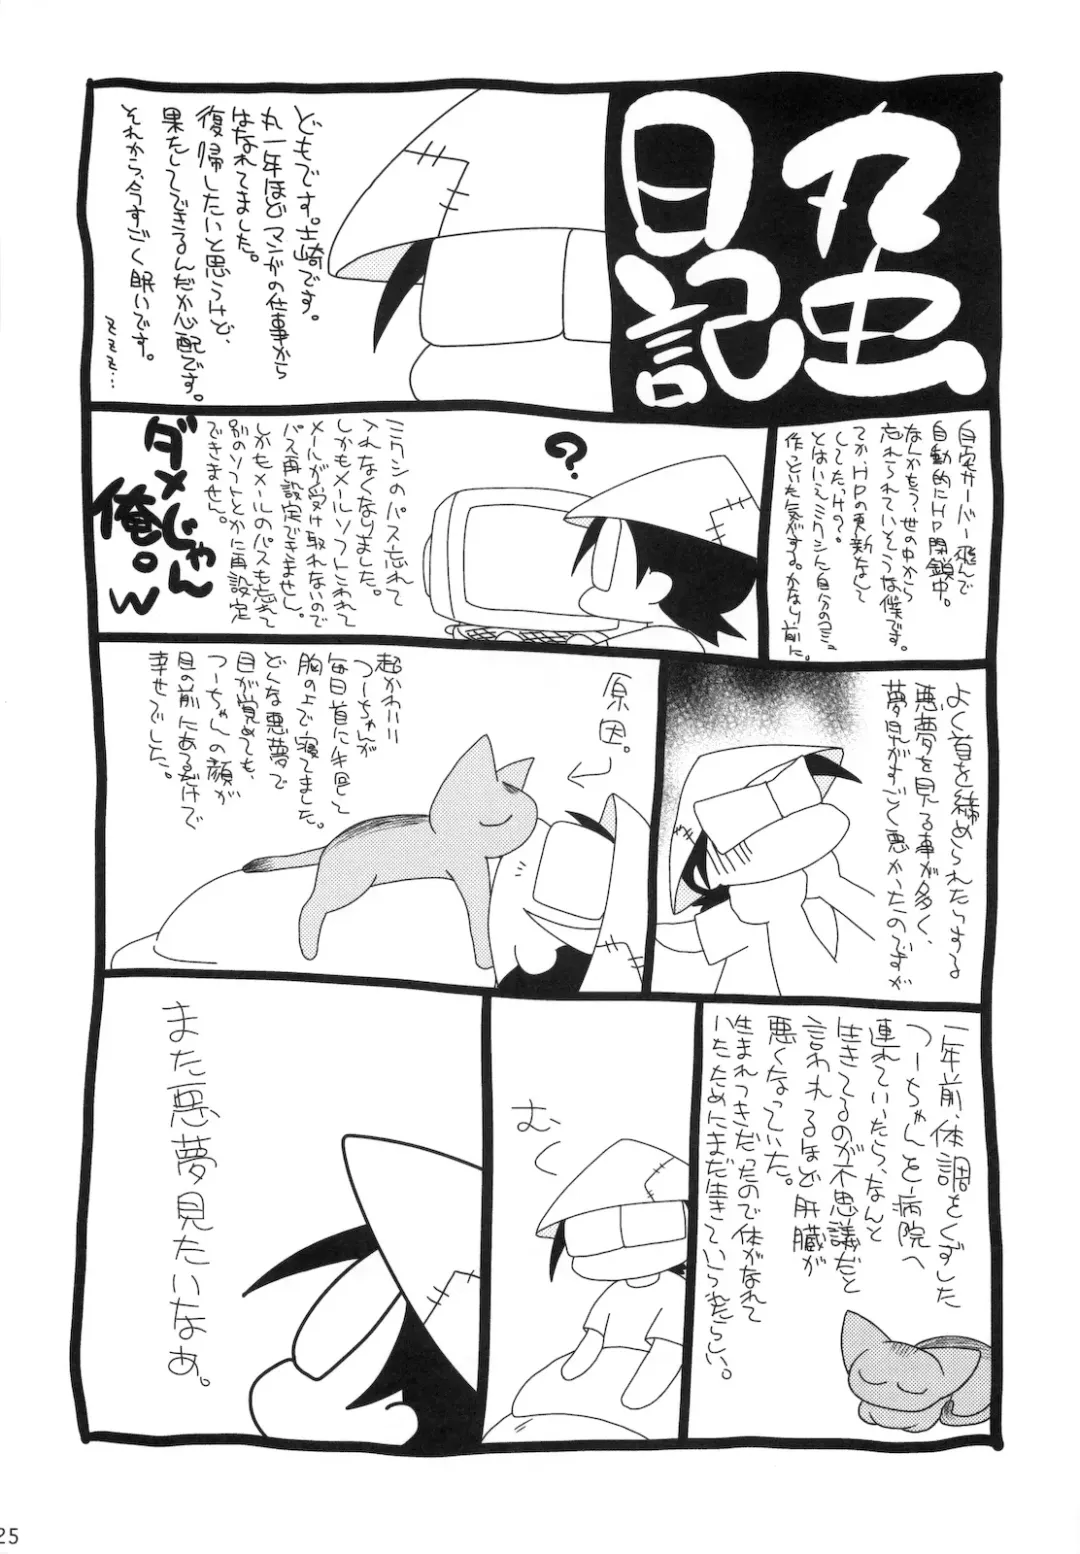 丸虫
日記
どもです。士崎です。
丸一年ほどマンガの仕事から
はなれてました。
復帰したいと思うけど、
果たしてできるんだか心配です。
それから、今すごく眠いです。
自宅サーバー飛んで
自動的にHP閉鎖中。
なんかもう、世の中から
忘れられていそうな僕です。
てか、HPの更新なんて
してたっけ?
とはいえミクシに自分のコミュ
作っていた気がする。かなり前に。
?
ミクシのパス忘れて
入れなくなりました。
しかもメールソフトこわれて
メールが受け取れないので
パス再設定できません。
しかもメールのパスも忘れて
別のソフトとかに再設定
できません。
ダメじゃん
俺。w
よく首を締められたりする
悪夢を見る事が多く、
夢見がすごく悪かったのですが
原因。
超かわいい
つーちゃんが
毎日首に手回して
胸の上で寝てました。
どんな悪夢で
目が覚めても、
つーちゃんの顔が
目の前にあるだけで
幸せでした。
一年前、体調をくずした
つーちゃんを病院へ
連れていたら、なんと
生きてるのが不思議だと
言われるほど肝臓が
悪くなっていた。
生まれつきだったので体がなれて
いたためにまだ生きていられたらしい。
むくっ
また悪夢見たいなぁ。
25